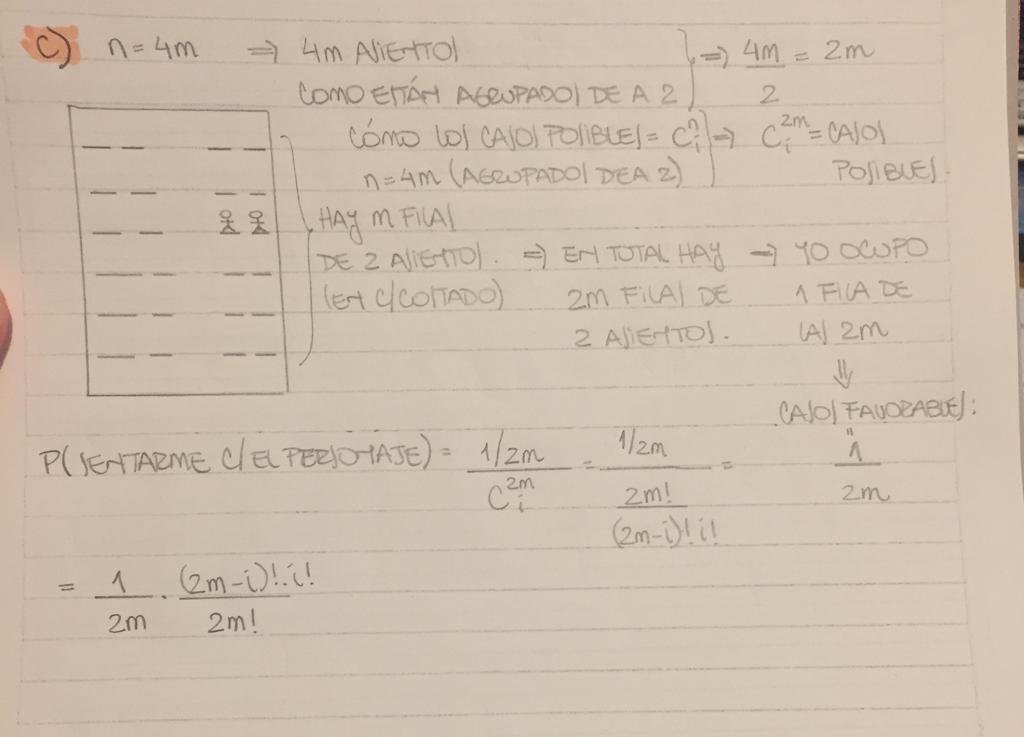 C) n = 4m ⇒ 4m ASIENTOS
COMO ESTÁN AGRUPADOS DE A 2 } ⇒ 4m/2 = 2m
CÓMO LOS CASOS POSIBLES = C_i^n
n = 4m (AGRUPADOS DE A 2) } ⇒ C_i^{2m} = CASOS POSIBLES.
HAY m FILAS
DE 2 ASIENTOS. ⇒ EN TOTAL HAY → YO OCUPO
(EN C/COSTADO) 2m FILAS DE 1 FILA DE
2 ASIENTOS. LAS 2m
⇓
CASOS FAVORABLES:
P(SENTARME C/ EL PERSONAJE) = (1/2m)/(C_i^{2m}) = (1/2m)/(2m!/((2m-i)! i!)) = " 1/2m
= 1/2m . (2m-i)!.i!/2m!